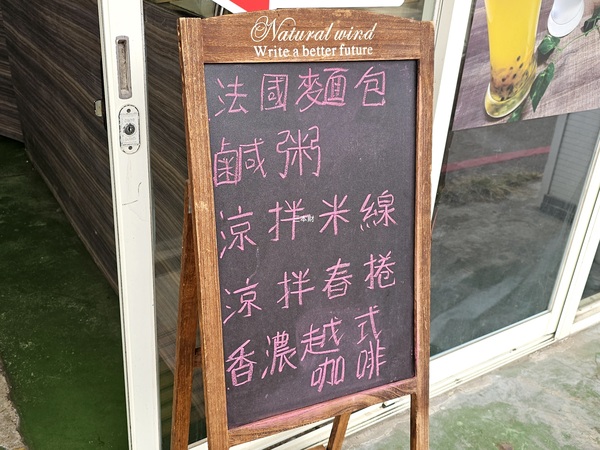 Natural wind
Write a better future
法國麵包
鹹粥
涼拌米線
涼拌春捲
香濃越式
咖啡